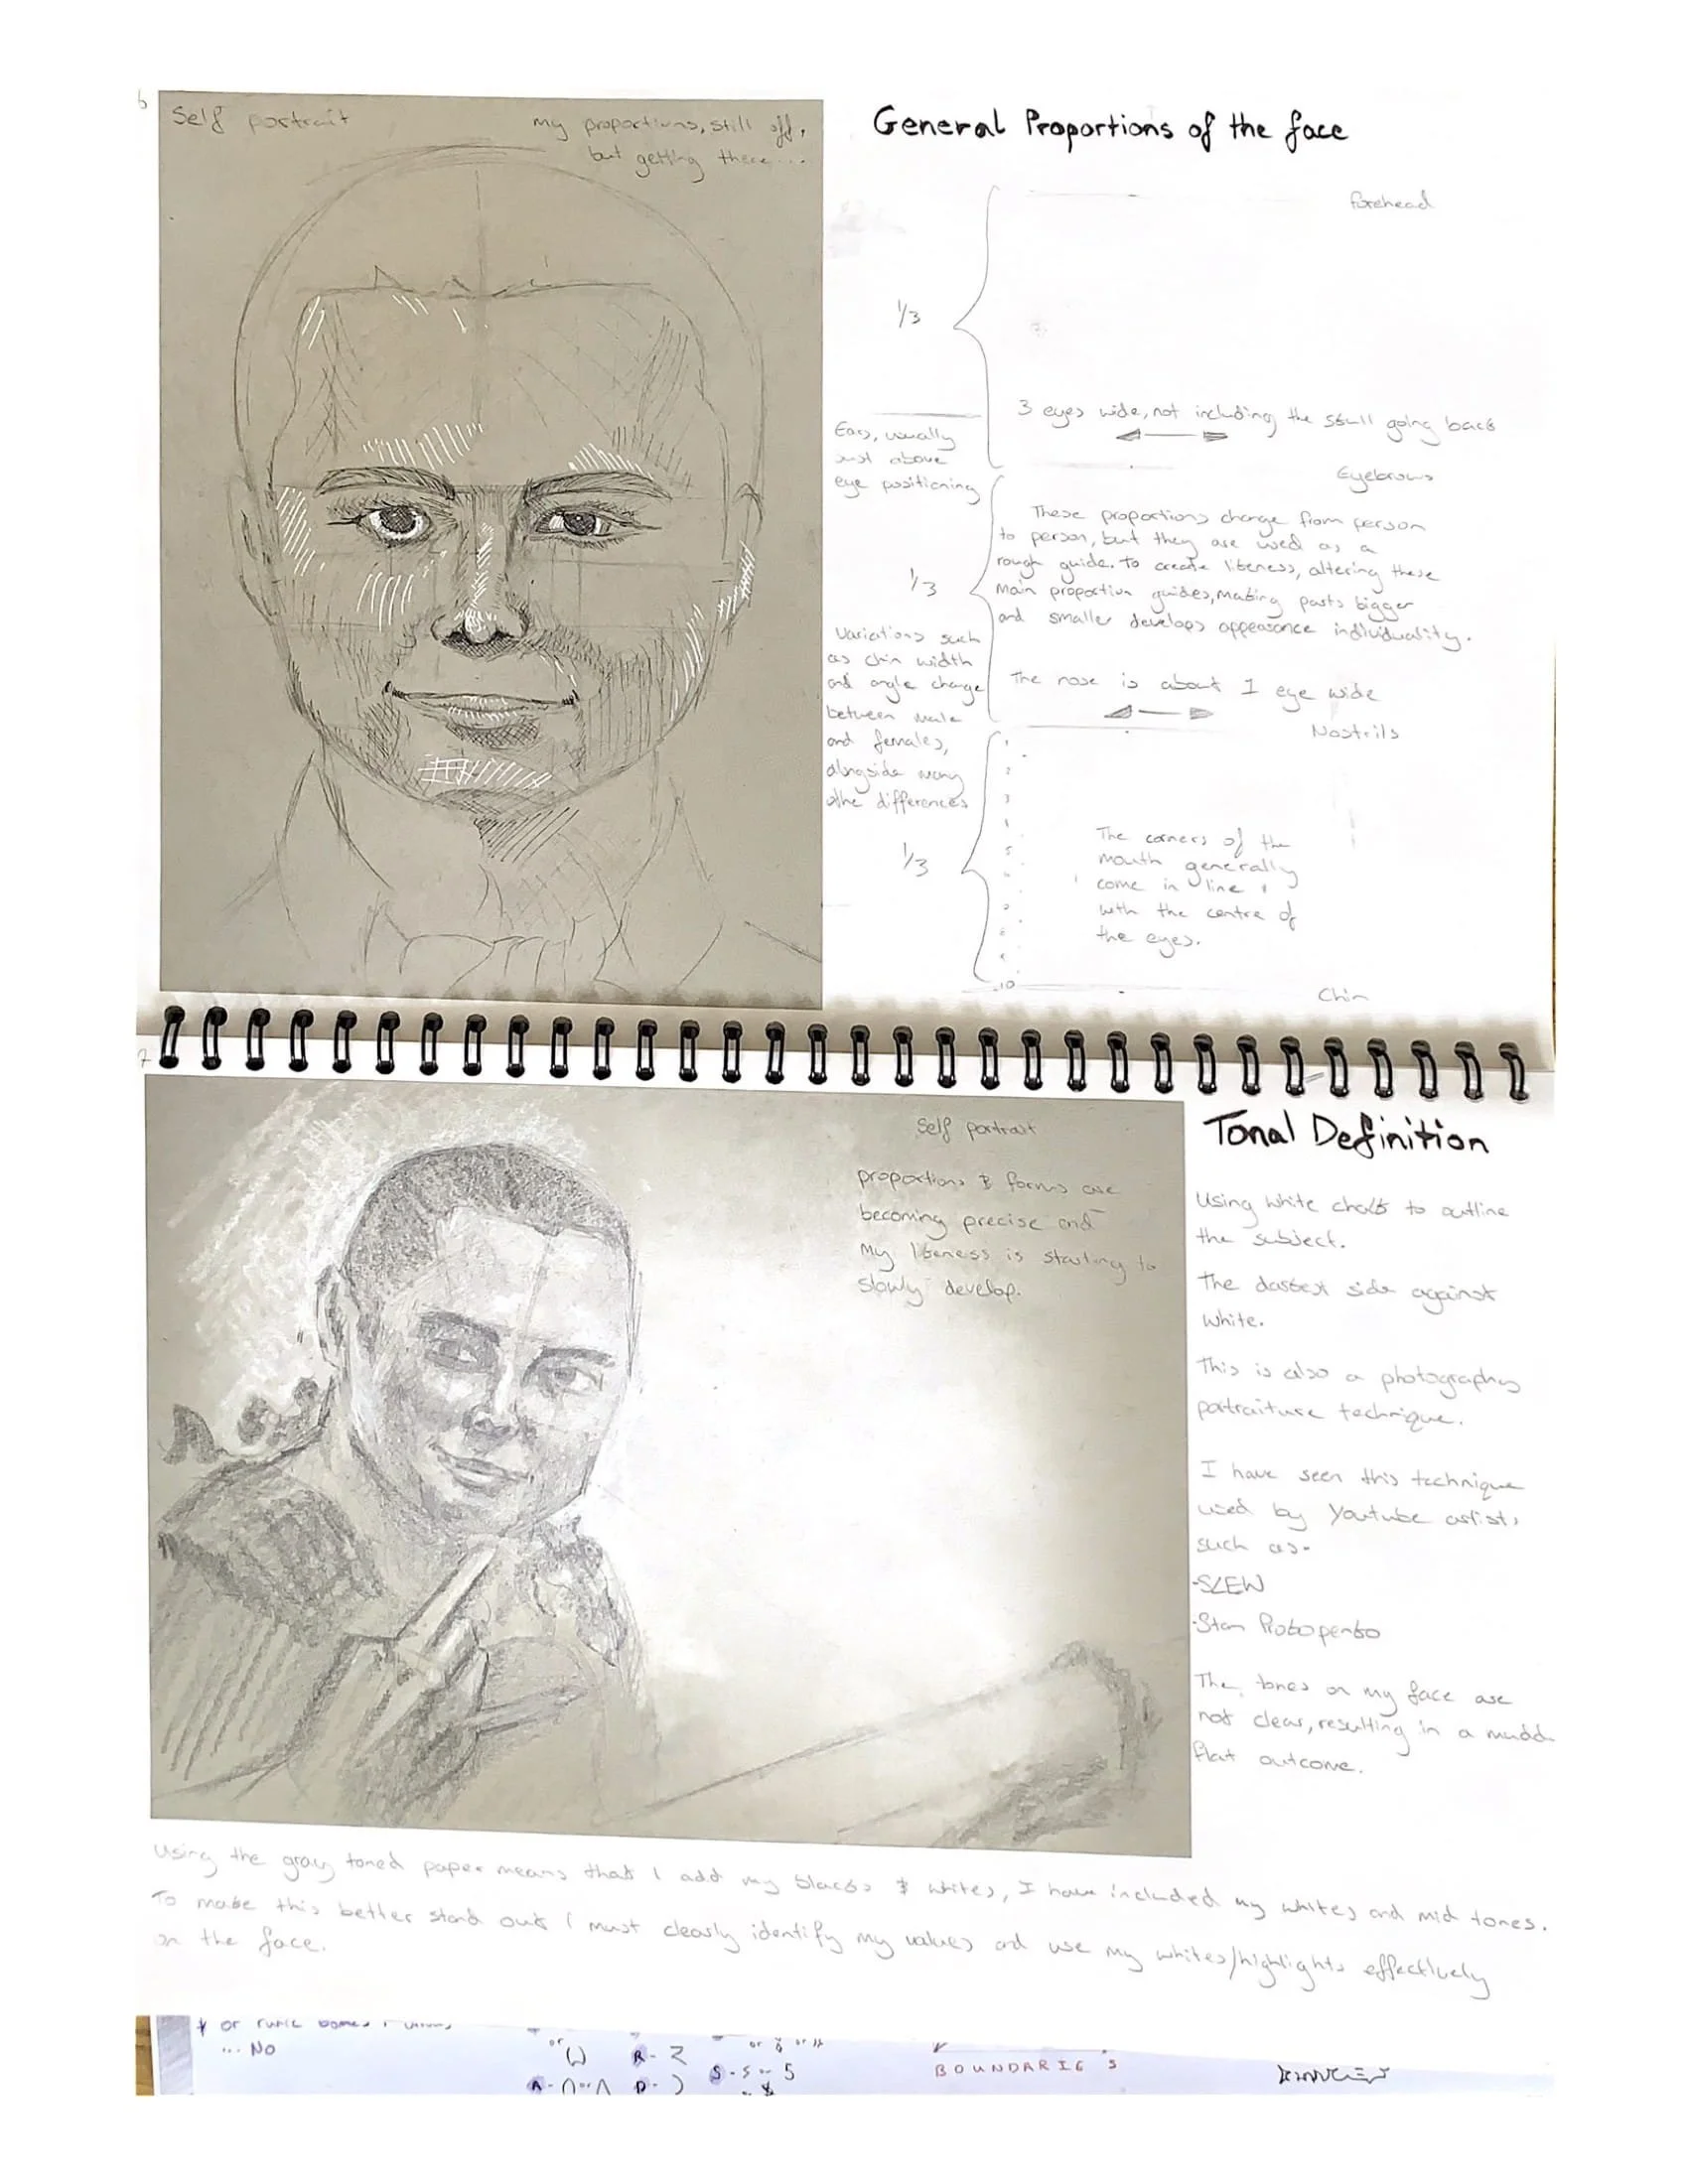 6
Self portrait
my proportions, still off,
but getting there...
General Proportions of the face
forehead
1/3
3 eyes wide, not including the skull going back
Ears, usually
just above
eye positioning
Eyebrows
These proportions change from person
to person, but they are used as a
rough guide. To create likeness, altering these
main proportion guides, making parts bigger
and smaller develops appearance individuality.
1/3
Variations such
as chin width
and angle change
between male
and females,
alongside many
othe differences
The nose is about 1 eye wide
Nostrils
1/3
The corners of the
mouth generally
come in line
with the centre of
the eyes.
10
Chin
7
Self portrait
proportions & forms are
becoming precise and
My likeness is starting to
slowly develop.
Tonal Definition
Using white chalk to outline
the subject.
The darkest side against
white.
This is also a photography
portraiture technique.
I have seen this technique
used by Youtube artists
such as-
-SLEW
-Stan Prokopenko
The tones on my face are
not clear, resulting in a mudd
flat outcome.
Using the gray toned paper means that I add my blacks & whites, I have included my whites and mid tones.
To make this better stand out I must clearly identify my values and use my whites/highlights effectively
on the face.
or runic
... No
or
R-
S-S or 5
A-
D-
BOUNDARIES